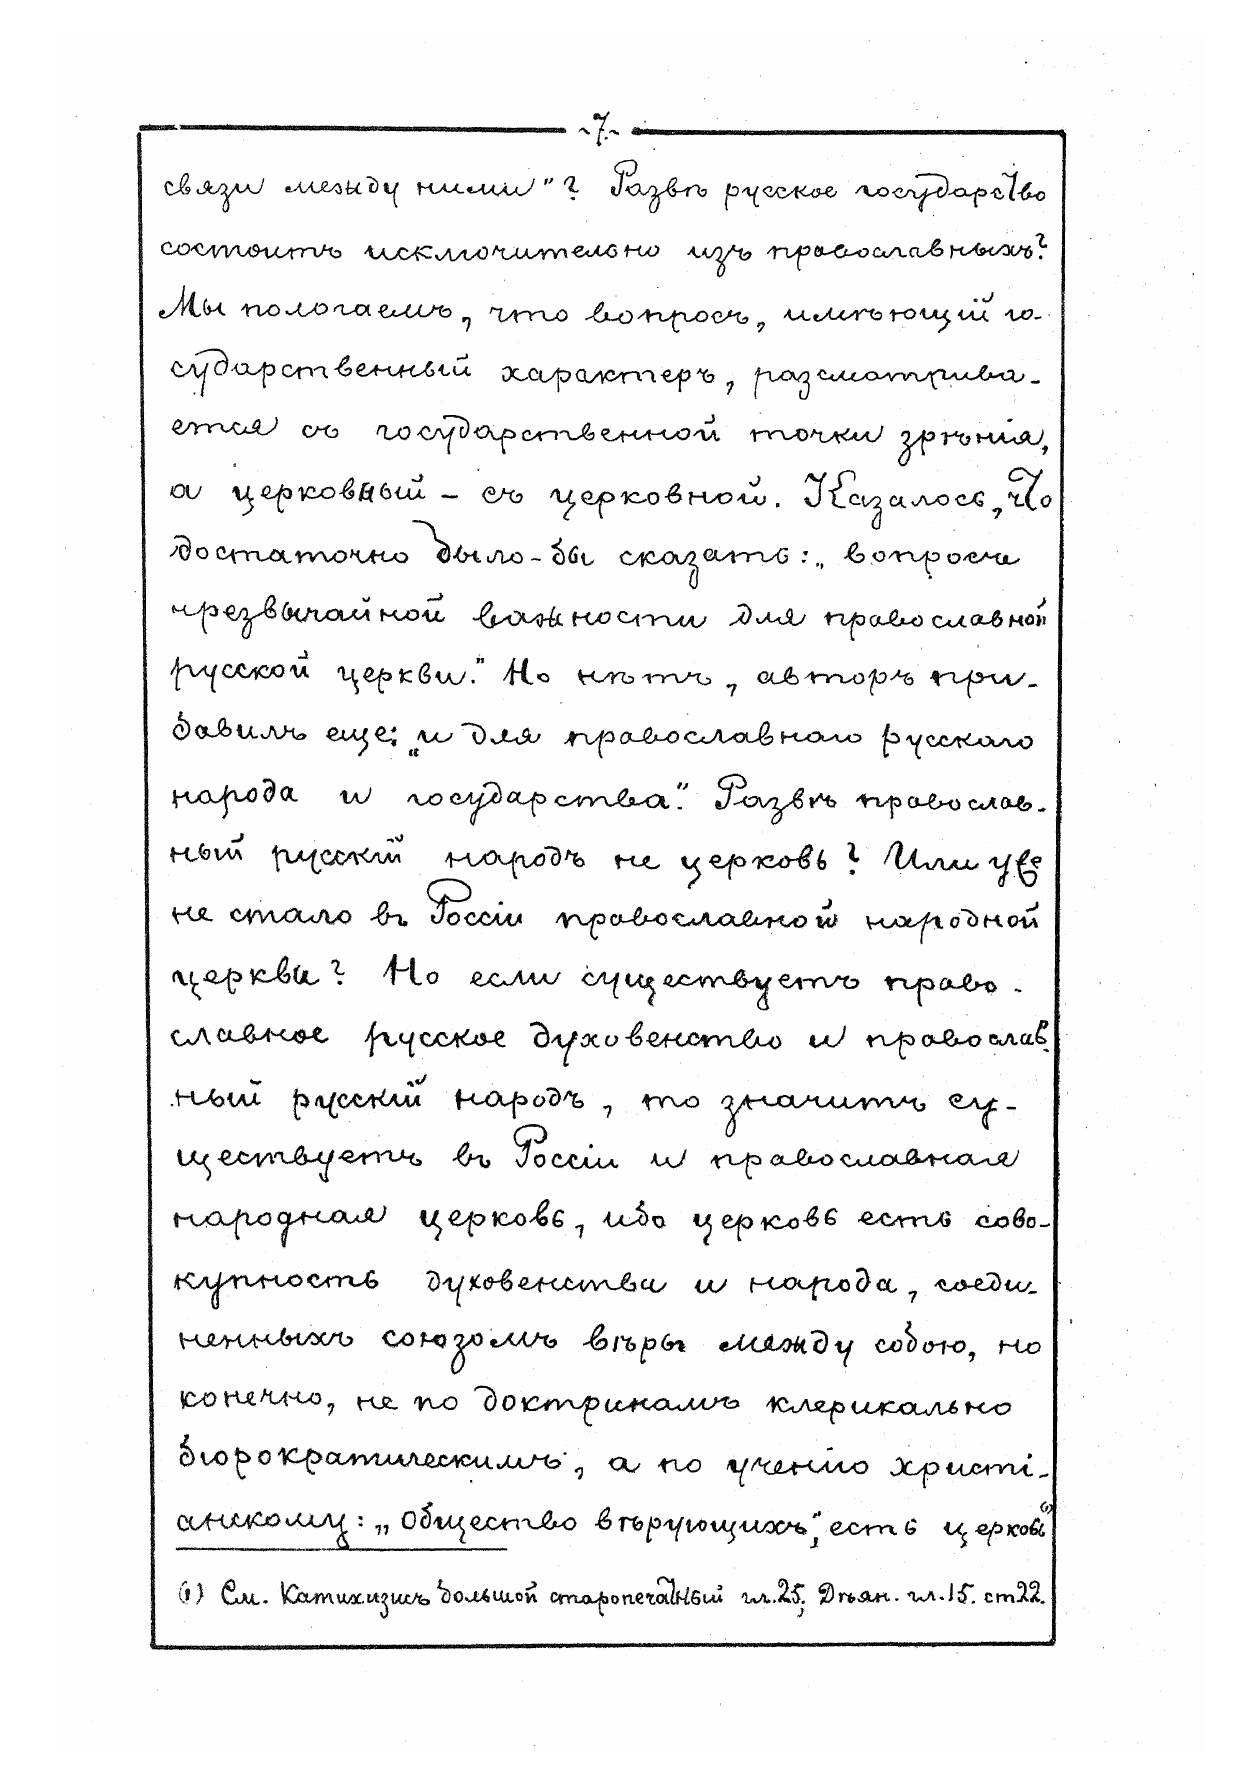 ~7.~
связи между ними"? Развѣ русское государство
состоитъ исключительно изъ православныхъ?
Мы пологаемъ, что вопросъ, имѣющій го-
сударственный характеръ, разсматрива-
ется съ государственной точки зрѣнія,
а церковный – съ церковной. Казалось, что
достаточно было-бы сказать: „вопросъ
чрезвычайной важности для православной
русской церкви." Но нѣтъ, авторъ при-
бавилъ еще: „и для православнаго русскаго
народа и государства". Развѣ православ-
ный русскій народъ не церковь? Или уже
не стало въ Россіи православной народной
церкви? Но если существуетъ право-
славное русское духовенство и православ-
ный русскій народъ, то значитъ су-
ществуетъ въ Россіи и православная
народная церковь, ибо церковь есть сово-
купность духовенства и народа, соеди-
ненныхъ союзомъ вѣры между собою, но
конечно, не по доктринамъ клерикально
бюрократическимъ, а по ученію христі-
анскому: „Общество вѣрующихъ", есть церковь (1)
(1) См. Катихизисъ большой старопечатный гл. 25; Дѣян. гл. 15. ст 22.